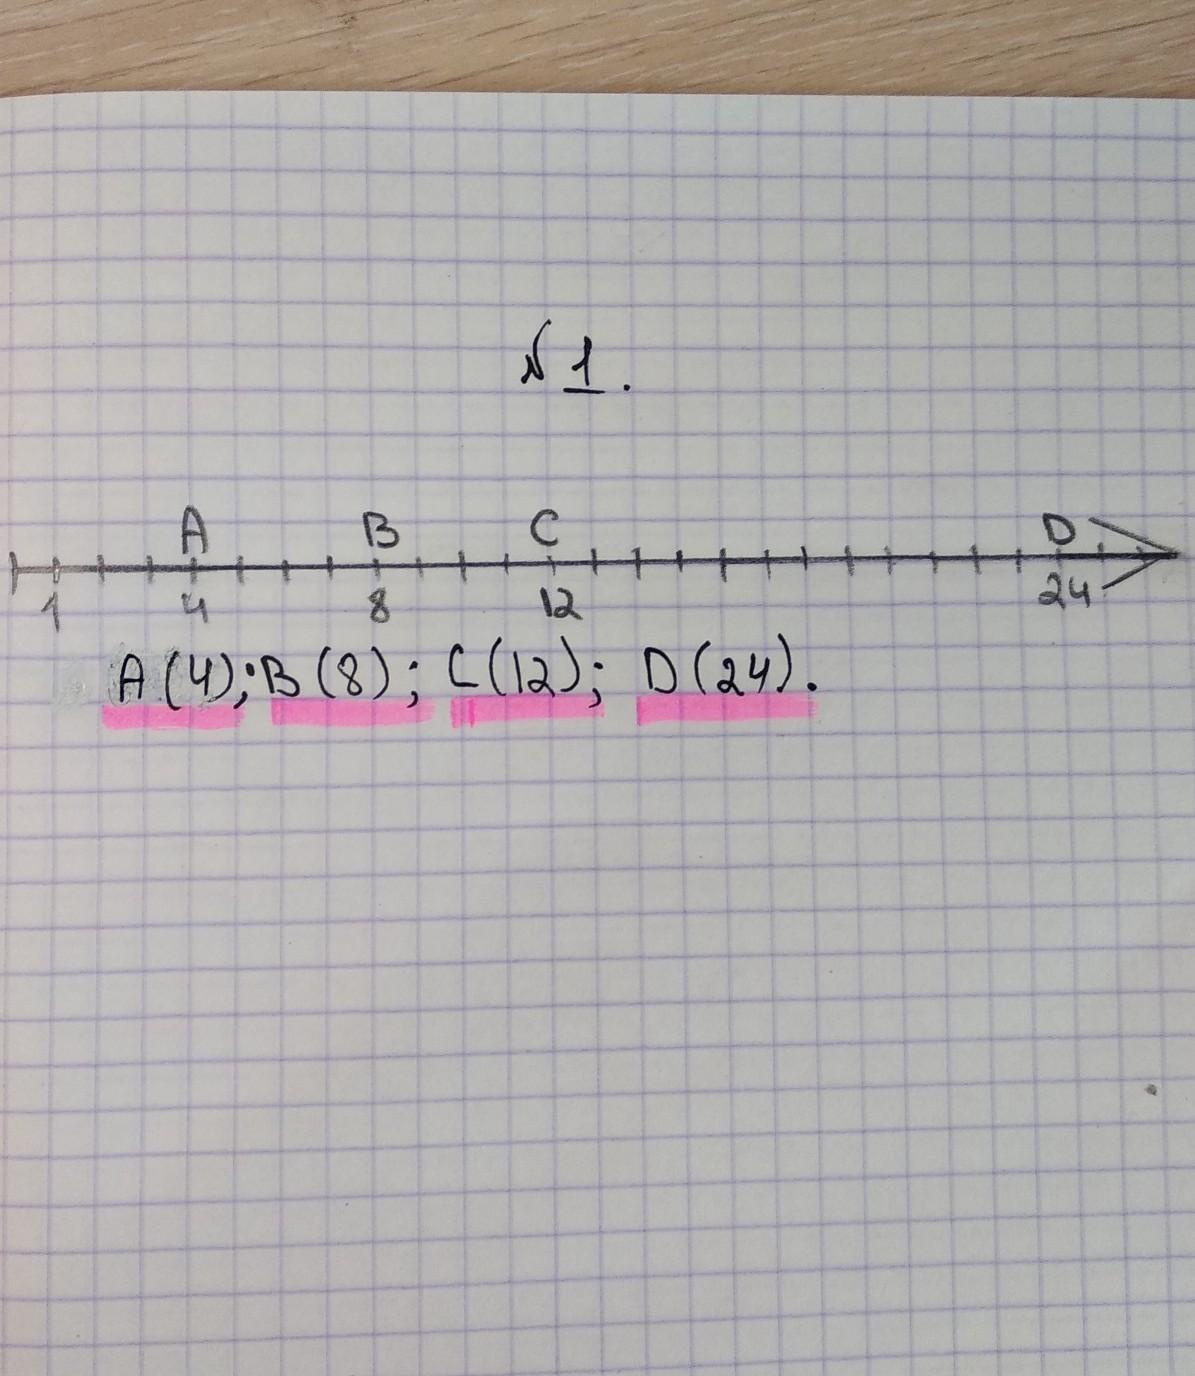 № 1.
A B C D
1 4 8 12 24
A(4); B(8); C(12); D(24).